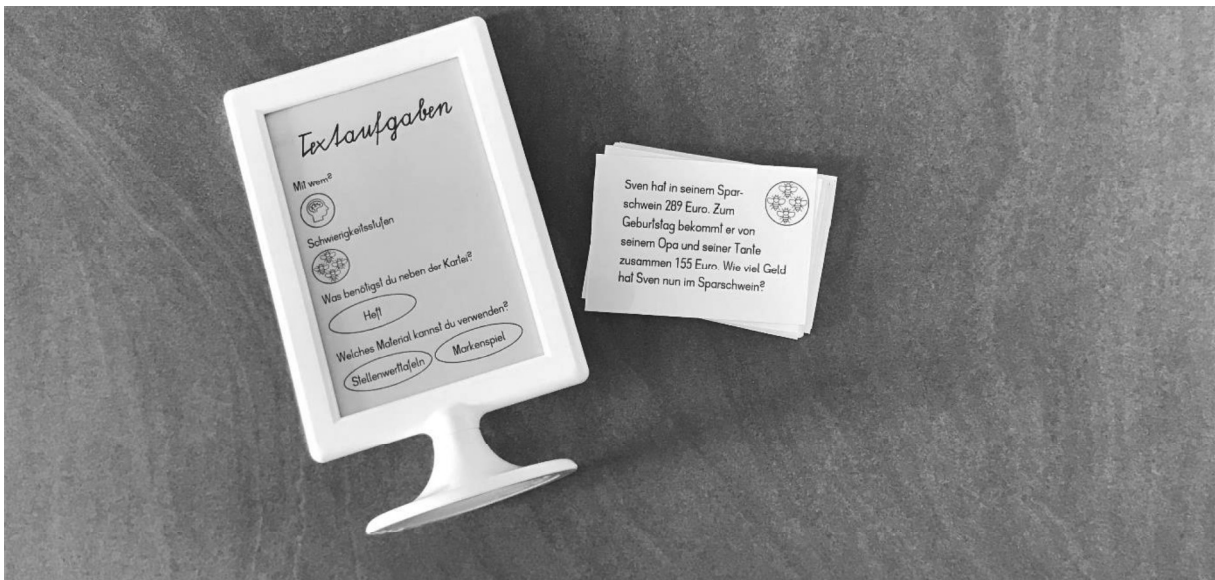 Textaufgaben
Mit wem?
Schwierigkeitsstufen
Was benötigst du neben der Kartei?
Heft
Welches Material kannst du verwenden?
Stellenwerttafeln
Markenspiel
Sven hat in seinem Spar-
schwein 289 Euro. Zum
Geburtstag bekommt er von
seinem Opa und seiner Tante
zusammen 155 Euro. Wie viel Geld
hat Sven nun im Sparschwein?